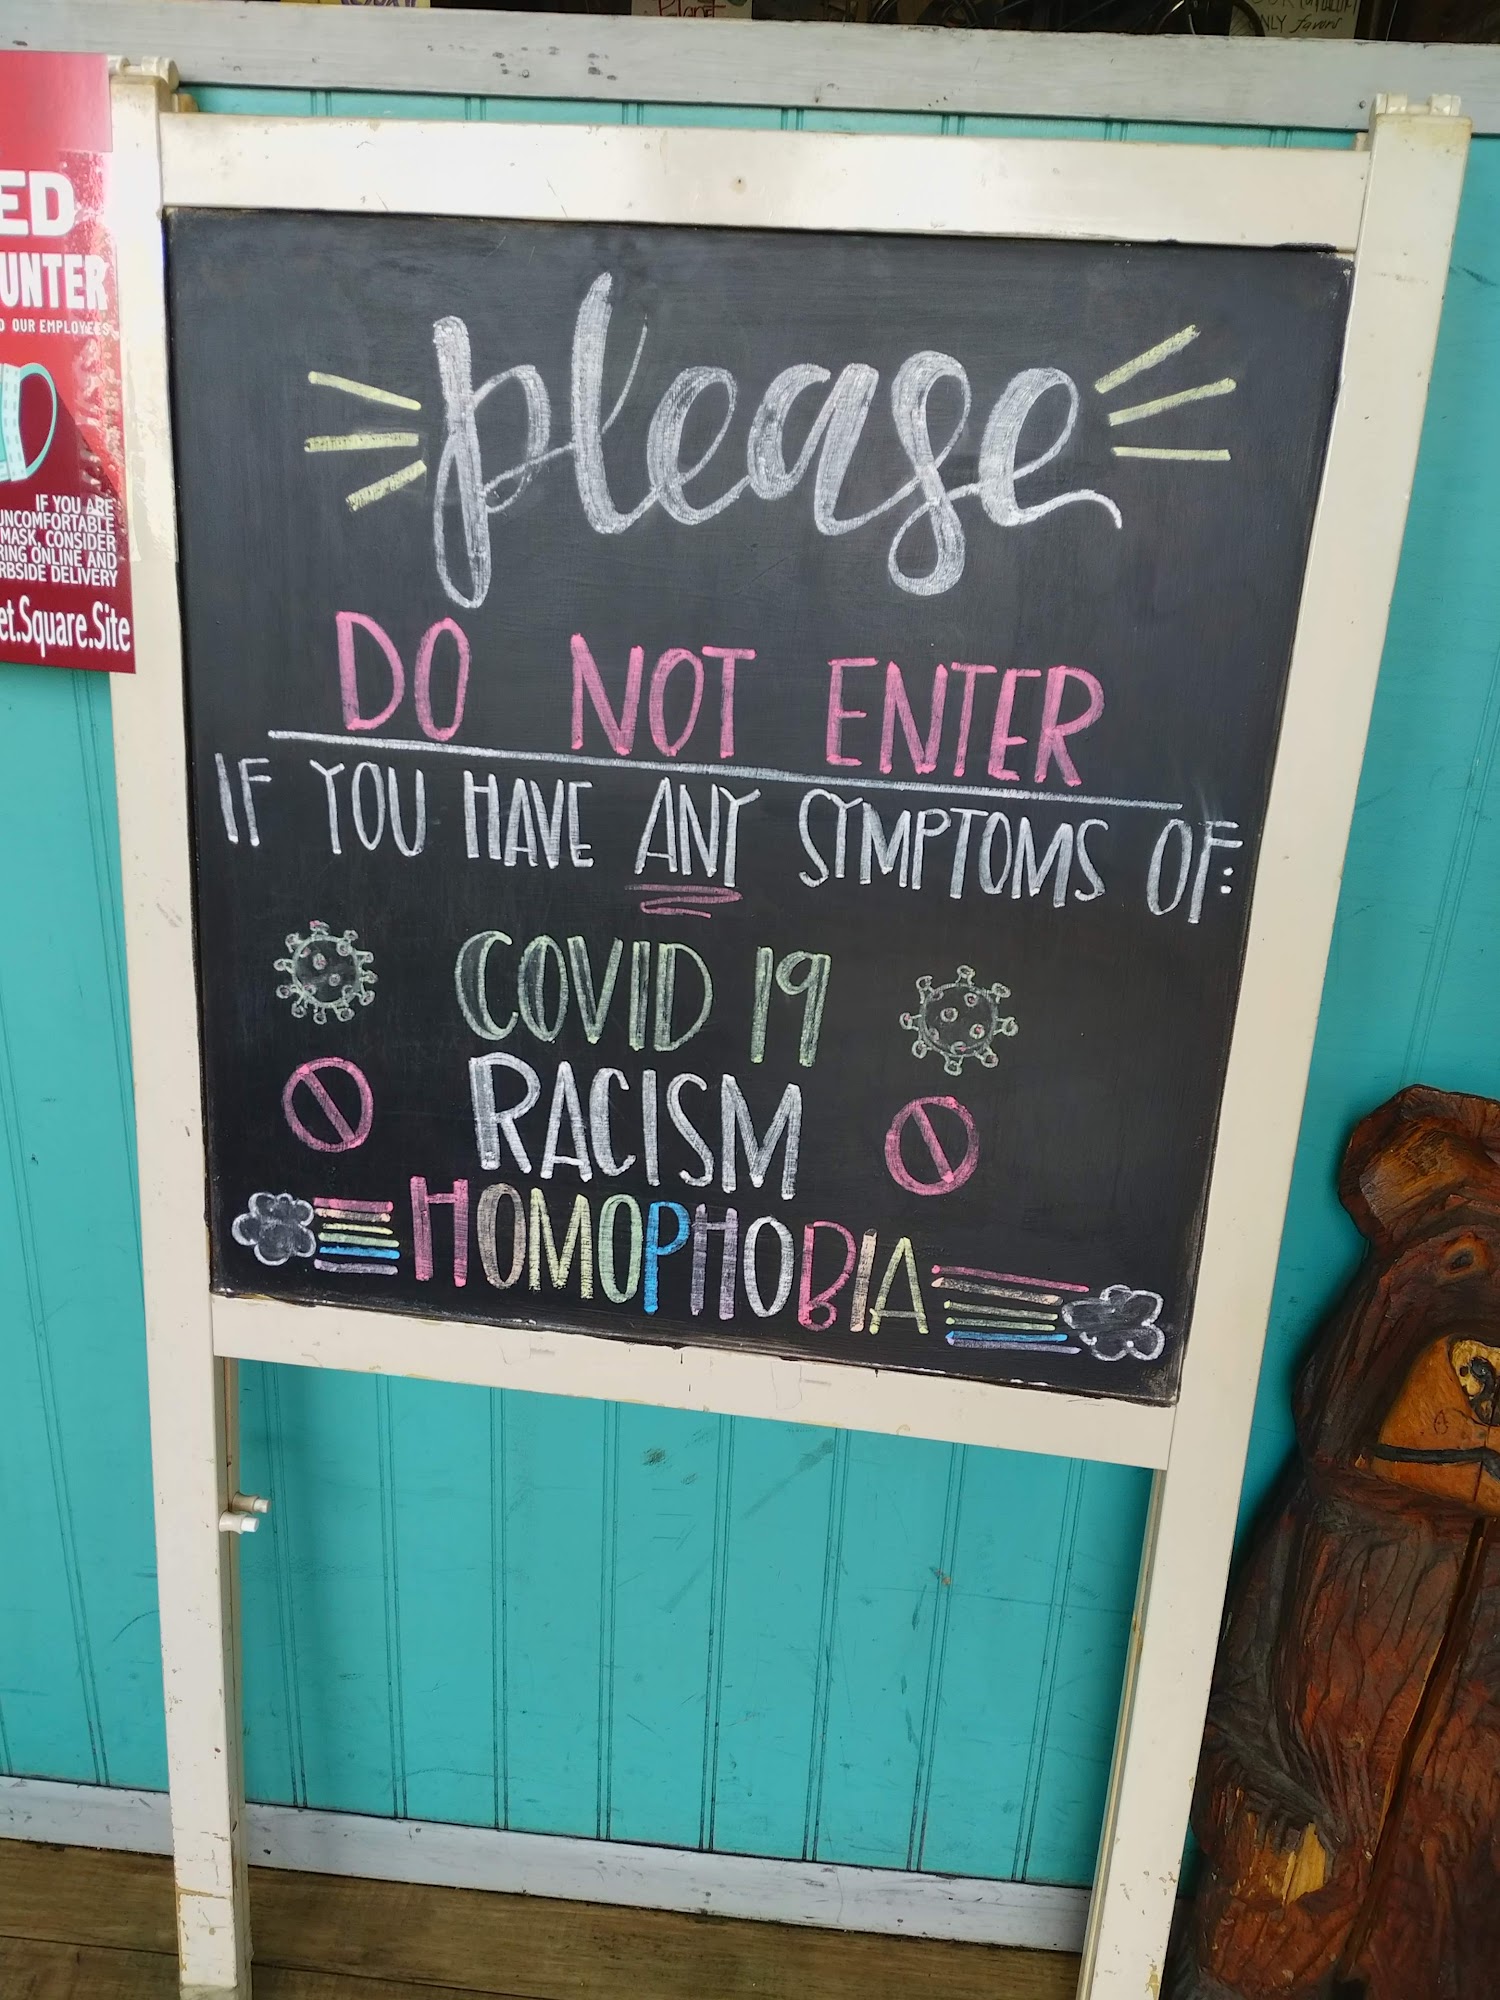 Planet
ONLY favors
ED
UNTER
OUR EMPLOYEES
IF YOU ARE
UNCOMFORTABLE
MASK, CONSIDER
ONLINE AND
DELIVERY
et.Square.Site
please
DO NOT ENTER
IF YOU HAVE ANY SYMPTOMS OF:
COVID 19
RACISM
HOMOPHOBIA